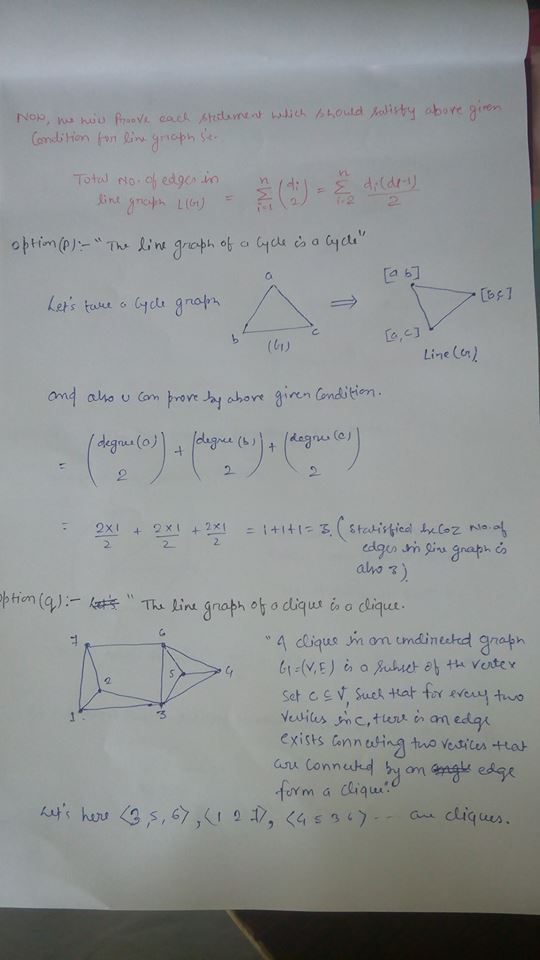 Now, we will Proove each statement which should satisfy above given
Condition for line graph i.e.
Total No. of edges in
line graph L(G) = n∑i=1 (di 2) = n∑i=2 di(di-1)/2
option(P):- "The line graph of a Cycle is a Cycle"
Let's take a Cycle graph
a
b
c
(G)
⇒
[a b]
[b,c]
[a,c]
Line(G)
and also u can prove by above given Condition.
= (degree(a) 2) + (degree(b) 2) + (degree(c) 2)
= 2x1/2 + 2x1/2 + 2x1/2 = 1+1+1 = 3. (Statisfied becoz No. of
edges in line graph is
also 3)
option(q):- "The line graph of a clique is a clique.
7
6
2
5
4
1
3
"A clique in an undirected graph
G=(V,E) is a subset of the vertex
set C ⊆ V, such that for every two
vertices in C, there is an edge
exists connecting two vertices that
are connected by an edge
form a clique."
Let's here <3,5,6>, <1 2 7>, <4 5 3 6> ... are cliques.